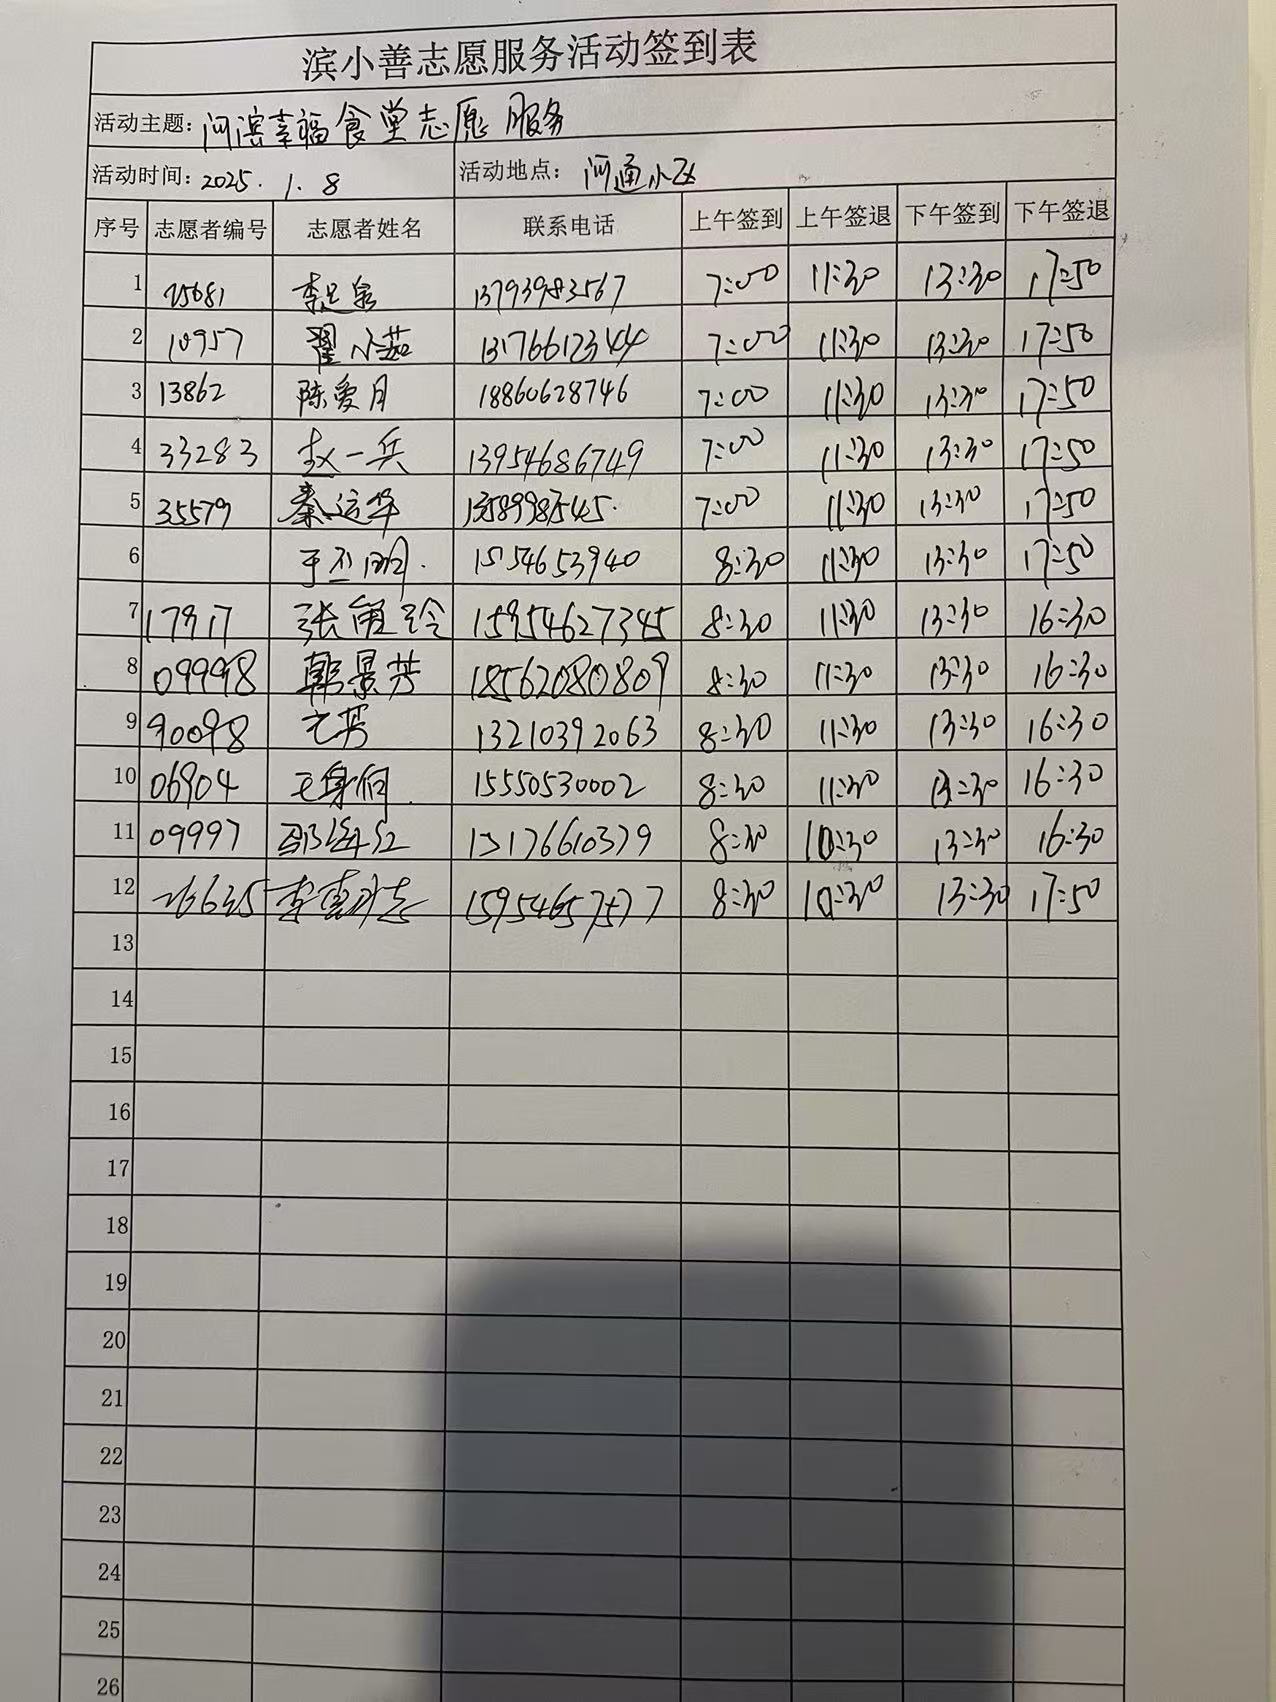 滨小善志愿服务活动签到表
活动主题：河滨幸福食堂志愿服务
活动时间：2025.1.8 活动地点：河通小区
序号 志愿者编号 志愿者姓名 联系电话 上午签到 上午签退 下午签到 下午签退
1 25681 13793983567 7:00 11:30 13:30 17:50
2 10957 翟小茹 13176612344 7:00 11:30 13:30 17:50
3 13862 陈爱月 18860628746 7:00 11:30 13:30 17:50
4 33283 赵一兵 13954686749 7:00 11:30 13:30 17:50
5 35579 秦运华 13589987545. 7:00 11:30 13:30 17:50
6 15154653940 8:30 11:30 13:30 17:50
7 17917 张 15954627345 8:30 11:30 13:30 16:30
8 09998 韩景芳 18562080809 8:30 11:30 13:30 16:30
9 90098 13210392063 8:30 11:30 13:30 16:30
10 06904 15550530002 8:30 11:30 13:30 16:30
11 09997 邵海红 13176610379 8:30 10:30 13:30 16:30
12 15954657577 8:30 10:30 13:30 17:50
13
14
15
16
17
18
19
20
21
22
23
24
25
26